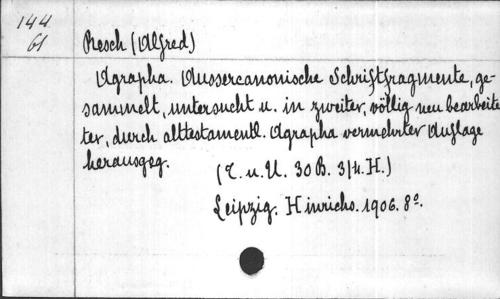 144
61
Resch (Alfred)
Agrapha. Aussercanonische Schriftfragmente, ge-
sammelt, untersucht u. in zweiter, völlig neu bearbeite
ter, durch alttestamentl. Agrapha vermehrter Auflage
herausgeg.
(T. u. U. 30 B. 3/4. H.)
Leipzig. Hinrichs. 1906. 8º.